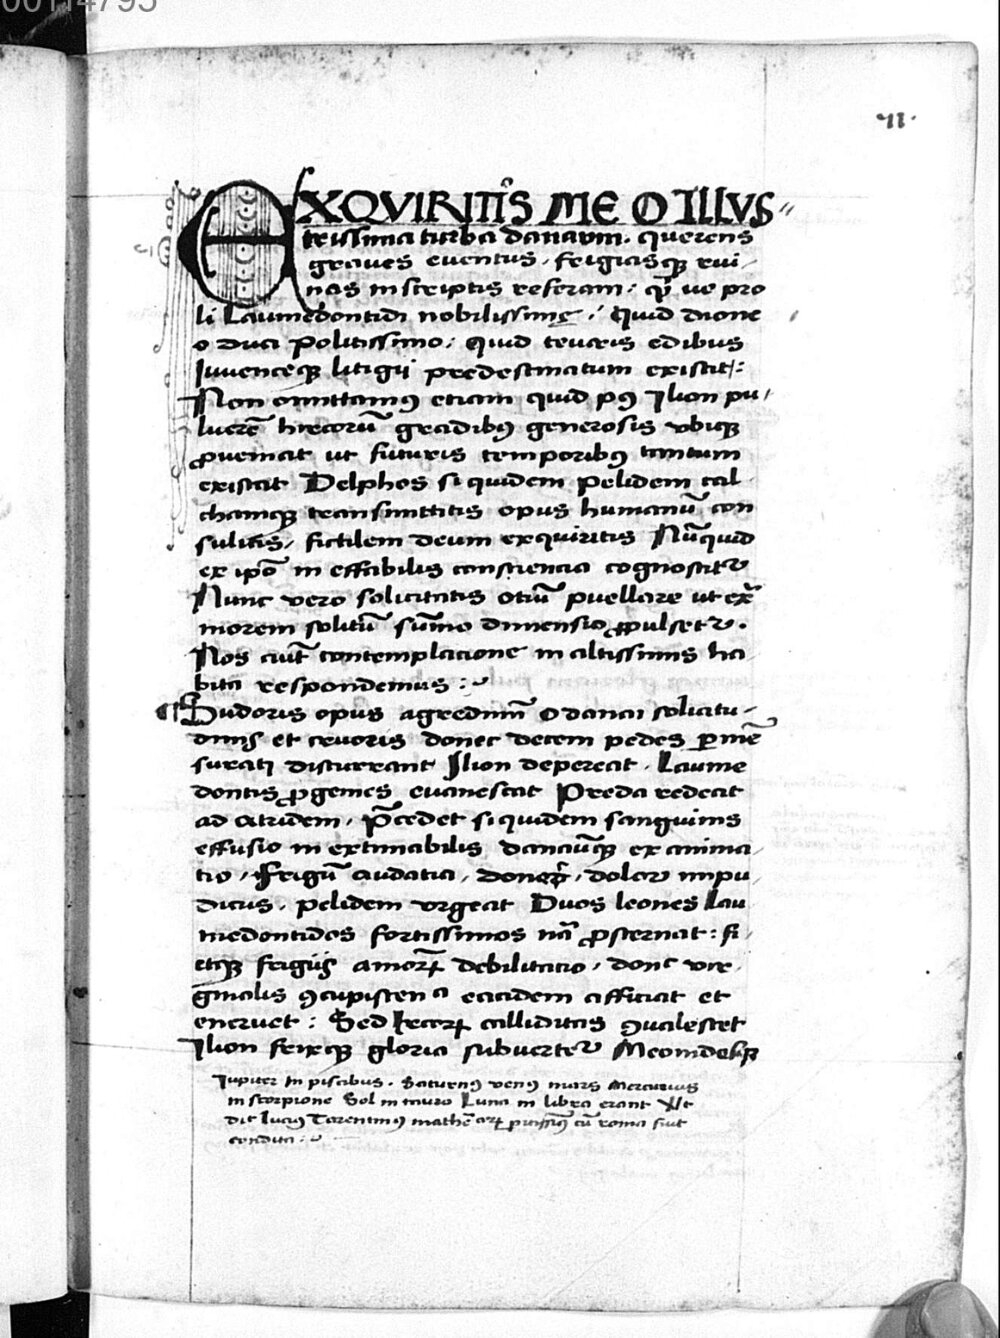 00114795
11.
EXQVIRITIS ME O ILLVS
trissima turba danaum. querens
graues euentus, frigiasq; rui,
nas in scriptis referam: q ue pro
li Laumedontidi nobilissime, Quid dione
o duci Politissimo: Quid teucris edibus
Iuuenceq; litigii predestinatum existit:
Non omittamq etiam quid pq Ilion pu,
luerē hrecorū gradibq generosis vbiq;
ꝓueniat ut futuris temporibq tantum
existat Delphos si quidem pelidem cal
chamq; transmittitis opus humanū con
sulitis, fictilem deum exquiritis Nūquid
ex ipō in effabilis consciencia cognoscit
Nunc vero solicitatis otiū puellare ut ext
morem solitū sūmo dimensio ꝓpulset.
Nos aut contemplacione in altissimis ha
bita respondemus:
Sudoris opus agredimī o danai solicitu,
dinis et cruoris donec decem pedes ꝑ mē
surati discurrant Ilion depereat. Laume
dontis ꝓgenies euanescat Preda redeat
ad atridem. Pcedet si quidem sanguinis
effusio in extimabilis danaūq; ex anima,
tio, Frigū audatia, doneqꝫ, dolor impu,
dicus. pelidem vrgeat Duos leones Lau
medontidos fortissimos nā ꝓsternat: fi,
etq; frigiis amorꝝ debilitatio, donc vir,
ginalis ꝯcupiscen a eacidem afficiat et
eneruet: Sed grecorꝝ calliditas ꝯualescet
Ilion ferixq; gloria subuertet
Iupiter in piscibus. Saturnq venq mars Mercurius
in scorpione Sol in tauro Luna in libra erant Vt
dic Luciq Tarentinq mathē arꝝ pitissiq cū roma fuit
condita: